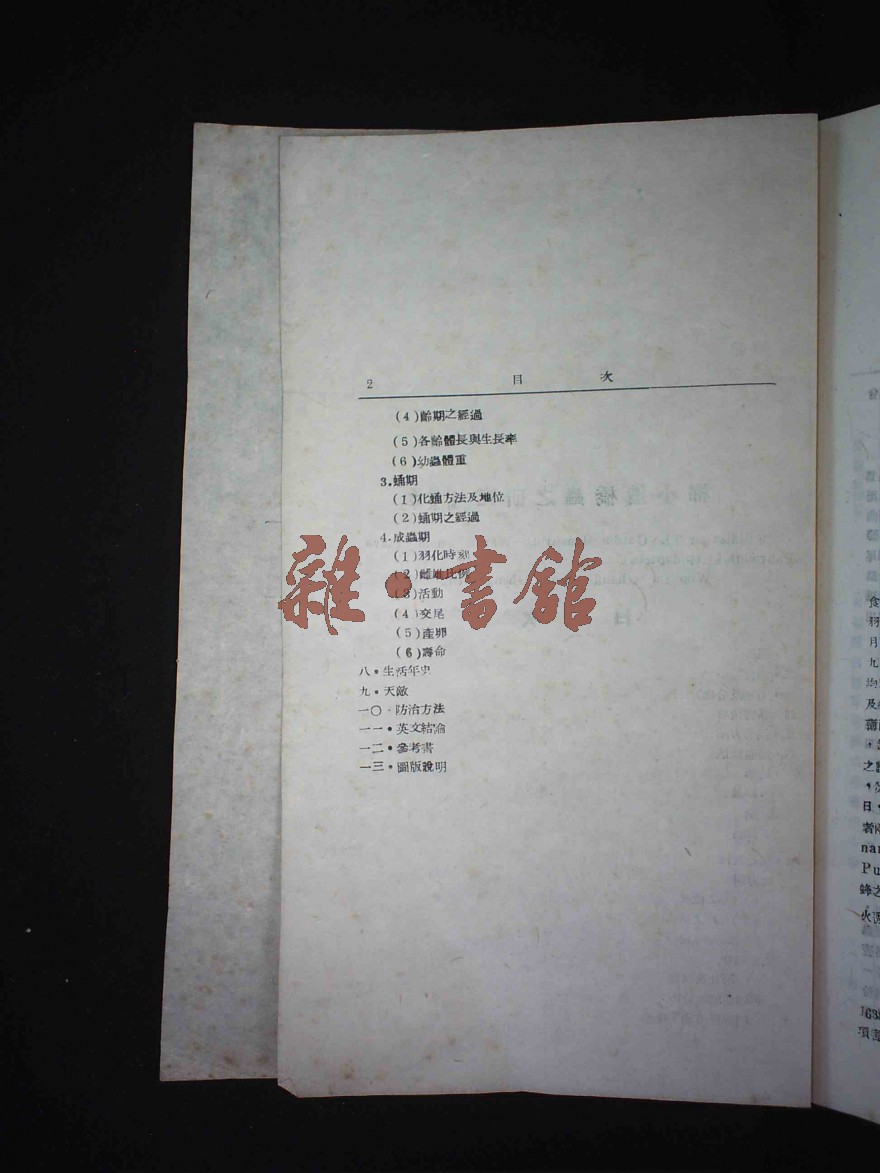 2 目 次
(4)齡期之經過
(5)各齡體長與生長率
(6)幼蟲體重
3.蛹期
(1)化蛹方法及地位
(2)蛹期之經過
4.成蟲期
(1)羽化時刻
(2)雌雄比例
(3)活動
(4)交尾
(5)產卵
(6)壽命
八•生活年史
九•天敵
一〇•防治方法
一一•英文結論
一二•參考書
一三•圖版說明
雜•書館
食
羽
月
九
均
及
之
日
者
nar
Pu
蜂之
火
項